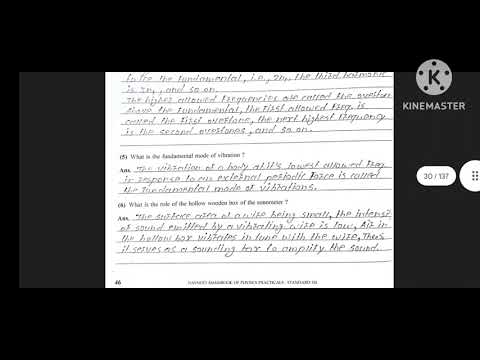 twice the fundamental, i.e., 2n, the third harmonic
is 3n, and so on.
The higher allowed frequencies are called the overtones
Above the fundamental, the first allowed freq. is
called the first overtone, the next highest frequency
is the second overtones, and so on.
(5) What is the fundamental mode of vibration ?
Ans. The vibration of a body at it's lowest allowed freq.
in response to an external periodic force is called
the fundamental mode of vibrations.
(6) What is the role of the hollow wooden box of the sonometer ?
Ans. The surface area of a wire being small, the intensi
of sound emitted by a vibrating wire is low, Air in
the hollow box vibrates in tune with the wire,
it serves as a sounding box to amplify the sound.
46
NAVNEET HANDBOOK OF PHYSICS PRACTICALS : STANDARD XII
KINEMASTER
30 / 137